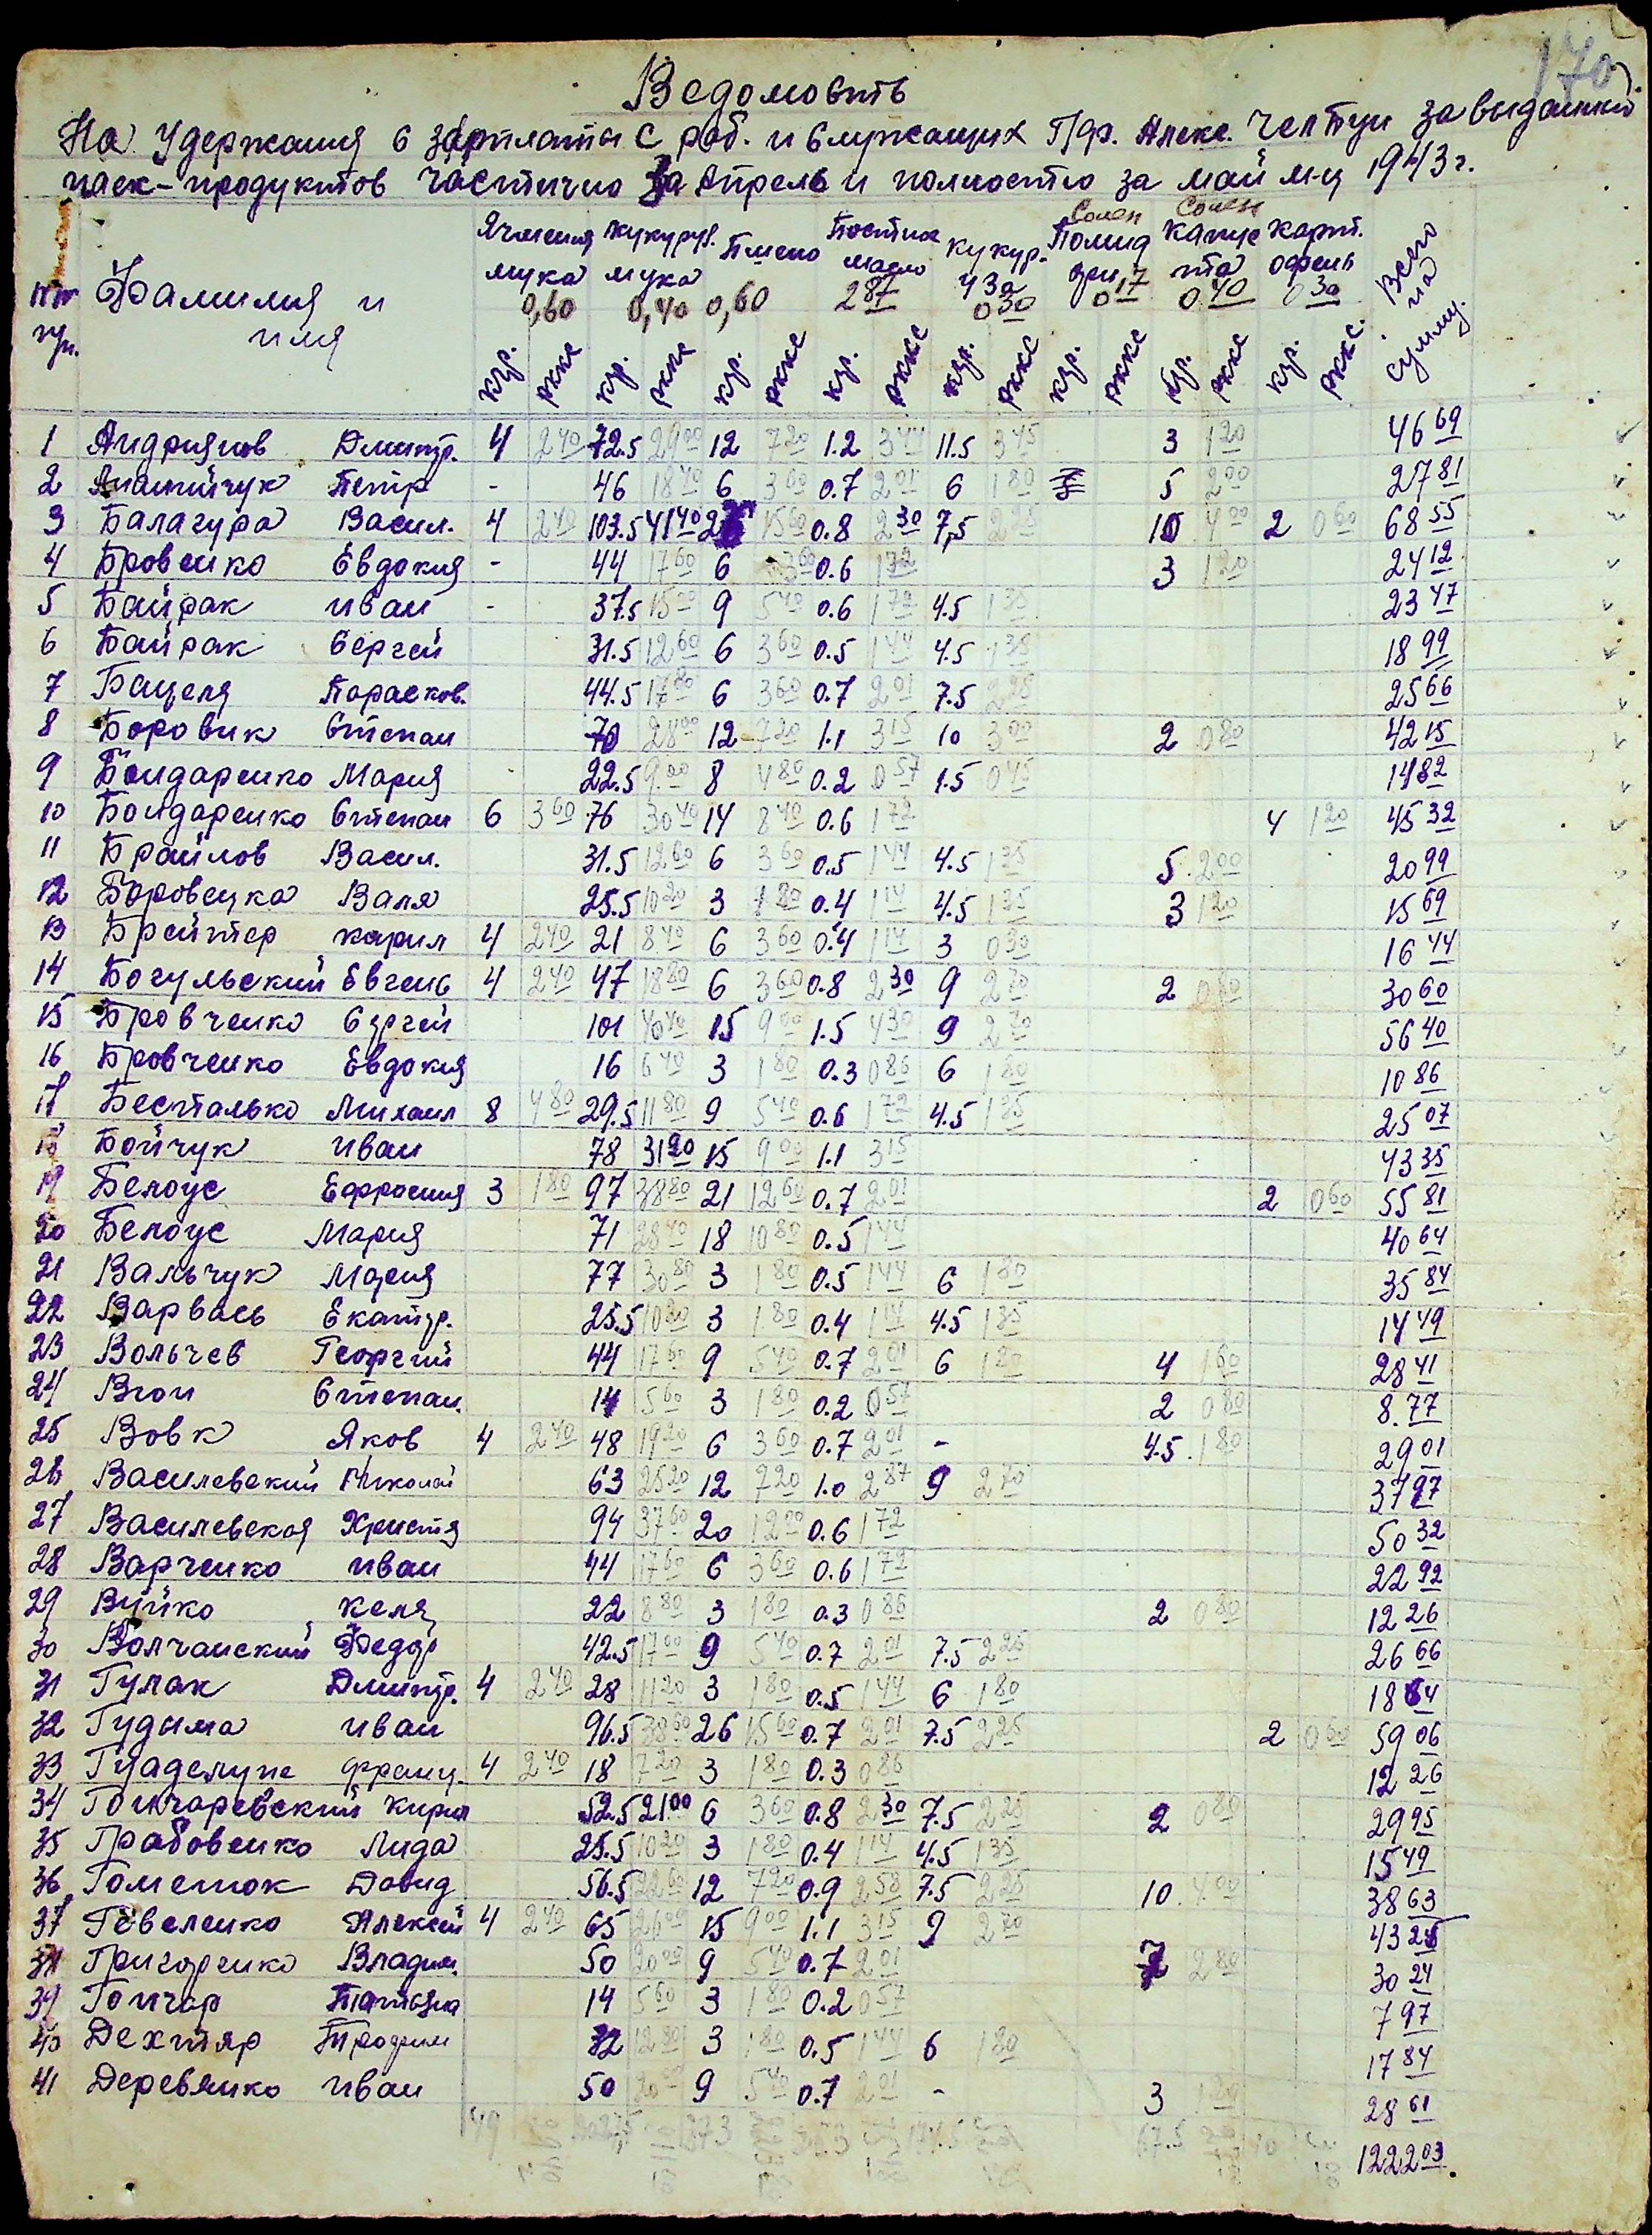 170
Ведомость
На Удержания с зарплаты с раб. и служащих Г/др. Алекс. за выданный
паек-продуктов частично за Апрель и полностью за май м-ц 1943 г.
Ячмения мука 0,60 кукуруз. мука 0,40 Пшено 0,60 Постное масло 2 87 кукур. 0 30 Солен Помид 0 17 Солен капуста 0.40 карт. 0 30 Всего на сумму.
Фамилия и имя
кгр. кгр. кгр. кгр. кгр. кгр. кгр. кгр.
1 Андриянов Дмитр. 4 2 40 72.5 29 00 12 7 20 1.2 3 44 11.5 3 45 3 1 20 46 69
2 Петр - 46 18 40 6 3 60 0.7 2 01 6 1 80 5 2 00 27 81
3 Балагура Васил. 4 2 40 103.5 41 40 15 60 0.8 2 30 7,5 2 25 10 4 00 2 0 60 68 55
4 Бровенко Евдокия - 44 17 60 6 3 60 0.6 1 72 3 1 20 24 12
5 Байрак Иван - 37.5 15 00 9 5 40 0.6 1 72 4.5 1 35 23 47
6 Байрак Сергей 31.5 12 60 6 3 60 0.5 1 44 4.5 1 35 18 99
7 Бацеля Парасков. 44.5 17 80 6 3 60 0.7 2 01 7.5 2 25 25 66
8 Боровик Степан 70 28 00 12 7 20 1.1 3 15 10 3 00 2 0 80 42 15
9 Бондаренко Мария 22.5 9.00 8 4 80 0.2 0 57 1.5 0 45 14 82
10 Бондаренко Степан 6 3 60 76 30 40 14 8 40 0.6 1 72 4 1 20 45 32
11 Брайлов Васил. 31.5 12 60 6 3 60 0.5 1 44 4.5 1 35 5 2 00 20 99
12 Боровецка Валя 25.5 10 20 3 1 80 0.4 1 14 4.5 1 35 3 1 20 15 69
13 Брейтер карил 4 2 40 21 8 40 6 3 60 0.4 1 14 3 0 90 16 44
14 Богульский Евгень 4 2 40 47 18 80 6 3 60 0.8 2 30 9 2 70 2 0 80 30 60
15 Бровченко Сергей 101 40 40 15 9 00 1.5 4 30 9 2 70 56 40
16 Бровченко Евдокия 16 6 40 3 1 80 0.3 0 86 6 1 80 10 86
17 Бесталько Михаил 8 4 80 29.5 11 80 9 5 40 0.6 1 72 4.5 1 35 25 07
18 Бойчук Иван 78 31 20 15 9 00 1.1 3 15 43 35
19 Белоус Ефросиния 3 1 80 97 38 80 21 12 60 0.7 2 01 2 0 60 55 81
20 Белоус Мария 71 28 40 18 10 80 0.5 1 44 40 64
21 Вальчук Мария 77 30 80 3 1 80 0.5 1 44 6 1 80 35 84
22 Варвась Екатер. 25.5 10 20 3 1 80 0.4 1 14 4.5 1 35 14 49
23 Вольчев Георгий 44 17 60 9 5 40 0.7 2 01 6 1 80 4 1 60 28 41
24 Вгон Степан. 14 5 60 3 1 80 0.2 0 57 2 0 80 8.77
25 Вовк Яков 4 2 40 48 19 20 6 3 60 0.7 2 01 - 4.5 1 80 29 01
26 Василевский Николай 63 25 20 12 7 20 1.0 2 87 9 2 70 37 97
27 Василевская Христя 94 37 60 20 12 00 0.6 1 72 50 32
28 Варченко Иван 44 17 60 6 3 60 0.6 1 72 22 92
29 Вуйко Келя 22 8 80 3 1 80 0.3 0 86 2 0 80 12 26
30 Волчанский Федор 42.5 17 00 9 5 40 0.7 2 01 7.5 2 25 26 66
31 Гулак Дмитр. 4 2 40 28 11 20 3 1 80 0.5 1 44 6 1 80 18 64
32 Гудыма Иван 96.5 38 60 26 15 60 0.7 2 01 7.5 2 25 2 0 60 59 06
33 Гуаделупе франц. 4 2 40 18 7 20 3 1 80 0.3 0 86 12 26
34 Гончаревский Кирил 52.5 21 00 6 3 60 0.8 2 30 7.5 2 25 2 0 80 29 95
35 Грабовенко Лида 25.5 10 20 3 1 80 0.4 1 14 4.5 1 35 15 49
36 Гоменюк Давид 56.5 22 60 12 7 20 0.9 2 58 7.5 2 25 10 4 00 38 63
37 Говеленко Алексей 4 2 40 65 26 00 15 9 00 1.1 3 15 9 2 70 43 25
38 Григоренко Владим. 50 20 00 9 5 40 0.7 2 01 7 2 80 30 24
39 Гончар Татьяна 14 5 60 3 1 80 0.2 0 57 7 97
40 Дехтяр Трофим 32 12 80 3 1 80 0.5 1 44 6 1 80 17 84
41 Деревянко Иван 50 20 00 9 5 40 0.7 2 01 - 3 1 20 28 61
49 373 67.5 10 1222 03.